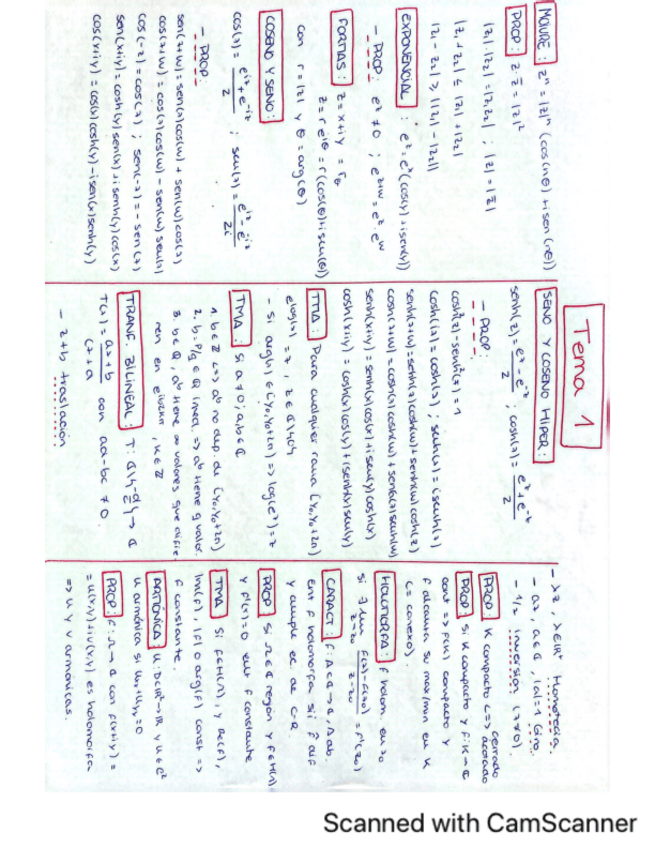 Tema 1
MOIVRE: zⁿ = |z|ⁿ (cos(nθ) + i sen(nθ))
PROP: z·z̄ = |z|²
|z₁·z₂| = |z₁||z₂| ; |z| = |z̄|
|z₁ + z₂| ≤ |z₁| + |z₂|
|z₁ - z₂| ≥ ||z₁| - |z₂||
EXPONENCIAL: eᶻ = eˣ (cos(y) + i sen(y))
- PROP: eᶻ ≠ 0 ; eᶻ⁺ʷ = eᶻ · eʷ
FORMAS: z = x+iy = r_θ
z = r e^{iθ} = r (cos(θ) + i sen(θ))
con r = |z| y θ = arg(z)
COSENO Y SENO:
cos(z) = (e^{iz} + e^{-iz})/2 ; sen(z) = (e^{iz} - e^{-iz})/2i
- PROP:
sen(z+w) = sen(z)cos(w) + sen(w)cos(z)
cos(z+w) = cos(z)cos(w) - sen(w)sen(z)
cos(-z) = cos(z) ; sen(-z) = -sen(z)
sen(x+iy) = cosh(y)sen(x) + i senh(y)cos(x)
cos(x+iy) = cos(x)cosh(y) - i sen(x)senh(y)
SENO Y COSENO HIPER:
senh(z) = (eᶻ - e⁻ᶻ)/2 ; cosh(z) = (eᶻ + e⁻ᶻ)/2
- PROP:
cosh²(z) - senh²(z) = 1
senh(z+w) = senh(z)cosh(w) + senh(w)cosh(z)
cosh(z+w) = cosh(z)cosh(w) + senh(z)senh(w)
senh(x+iy) = senh(x)cos(y) + i sen(y)cosh(x)
cosh(x+iy) = cosh(x)cos(y) + i senh(x)sen(y)
TMA: Para cualquier rama [y₀, y₀+2π)
e^{log(z)} = z, z ∈ ℂ\{0}
- Si arg(z) ∈ [y₀, y₀+2π) => log(eᶻ) = z
TMA: Si a ≠ 0, a,b ∈ ℂ
1. b ∈ ℤ <=> aᵇ no dep. de [y₀, y₀+2π)
2. b = p/q ∈ ℚ irred. => aᵇ tiene q valor.
3. b ∉ ℚ, aᵇ tiene ∞ valores que difie
ren en e^{i2πbk}, k ∈ ℤ
TRANF. BILINEAL: T: ℂ\{-d/c} → ℂ
T(z) = (az+b)/(cz+d) con ad-bc ≠ 0
- z+b traslación
- λz, λ ∈ ℝ⁺ Homotecia.
- az, a ∈ ℂ, |a|=1 Giro.
- 1/z inversión (z≠0).
PROP: K compacto <=> cerrado acotado
PROP: Si K compacto y f: K → ℂ
cont => f(K) compacto y
f alcanza su max/min en K
C = conexo).
HOLOMORFA: f holom. en z₀
si ∃ lim z→z₀ (f(z)-f(z₀))/(z-z₀) = f'(z₀)
CARACT: f: A ⊂ ℂ → ℂ, A ab.
Ent f holomorfa sii f dif
y cumple ec. de C-R.
PROP: Si Ω ⊂ ℂ región y f ∈ H(Ω)
y f'(z) = 0 ent f constante
TMA: Si f ∈ H(Ω), y Re(f),
Im(f), |f| o arg(f) const =>
f constante.
ARMÓNICA: u: D ⊂ ℝ² → ℝ y u ∈ C²
u armónica si uₓₓ + u_yy = 0
PROP: f: Ω → ℂ con f(x+iy) =
= u(x,y) + iv(x,y) es holomorfa
=> u y v armónicas.
Scanned with CamScanner